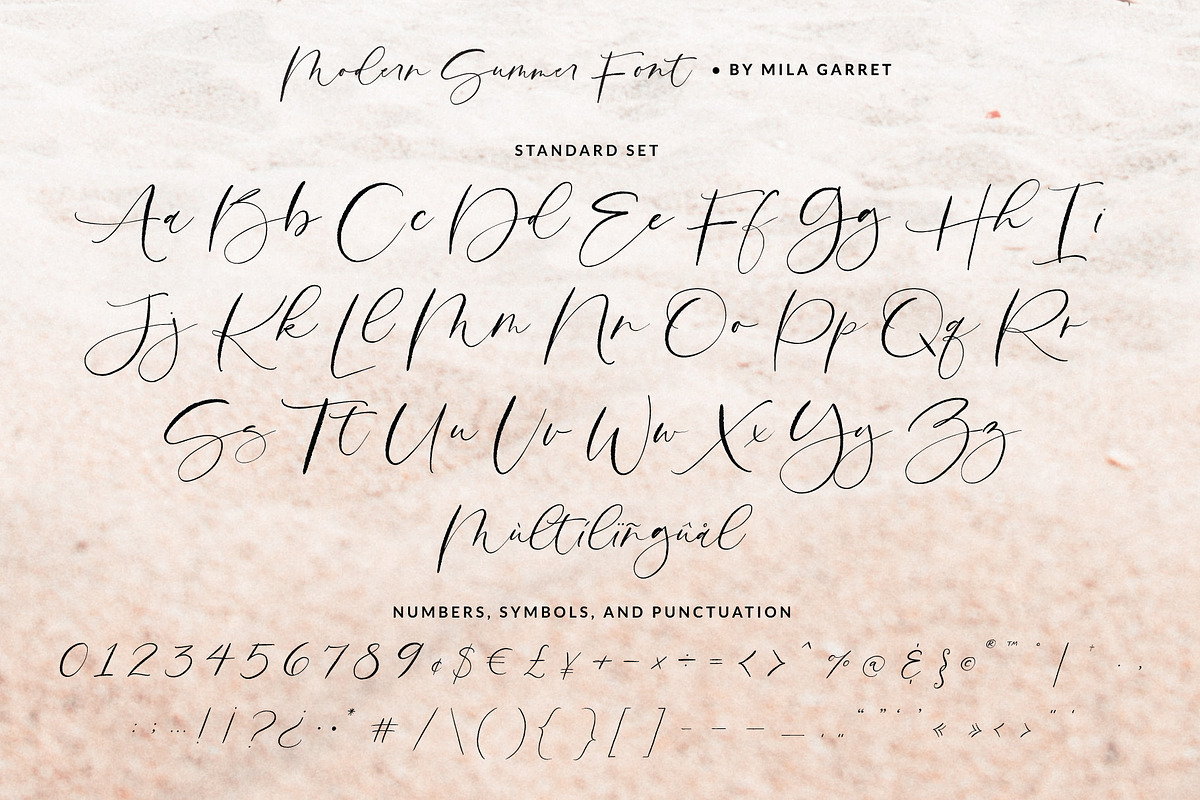 Modern Summer Font • BY MILA GARRET
STANDARD SET
Aa Bb Cc Dd Ee Ff Gg Hh Ii
Jj Kk Ll Mm Nn Oo Pp Qq Rr
Ss Tt Uu Vv Ww Xx Yy Zz
Mùltílïñgûàl
NUMBERS, SYMBOLS, AND PUNCTUATION
0 1 2 3 4 5 6 7 8 9 ¢ $ € £ ¥ + − × ÷ = < > ^ % @ & § © ® ™ ° / + . ,
: ; … ! ¡ ? ¿ · • * # / \ ( ) { } [ ] - – — _ ‚ „ “ ” ‘ ’ « » ‹ › " '